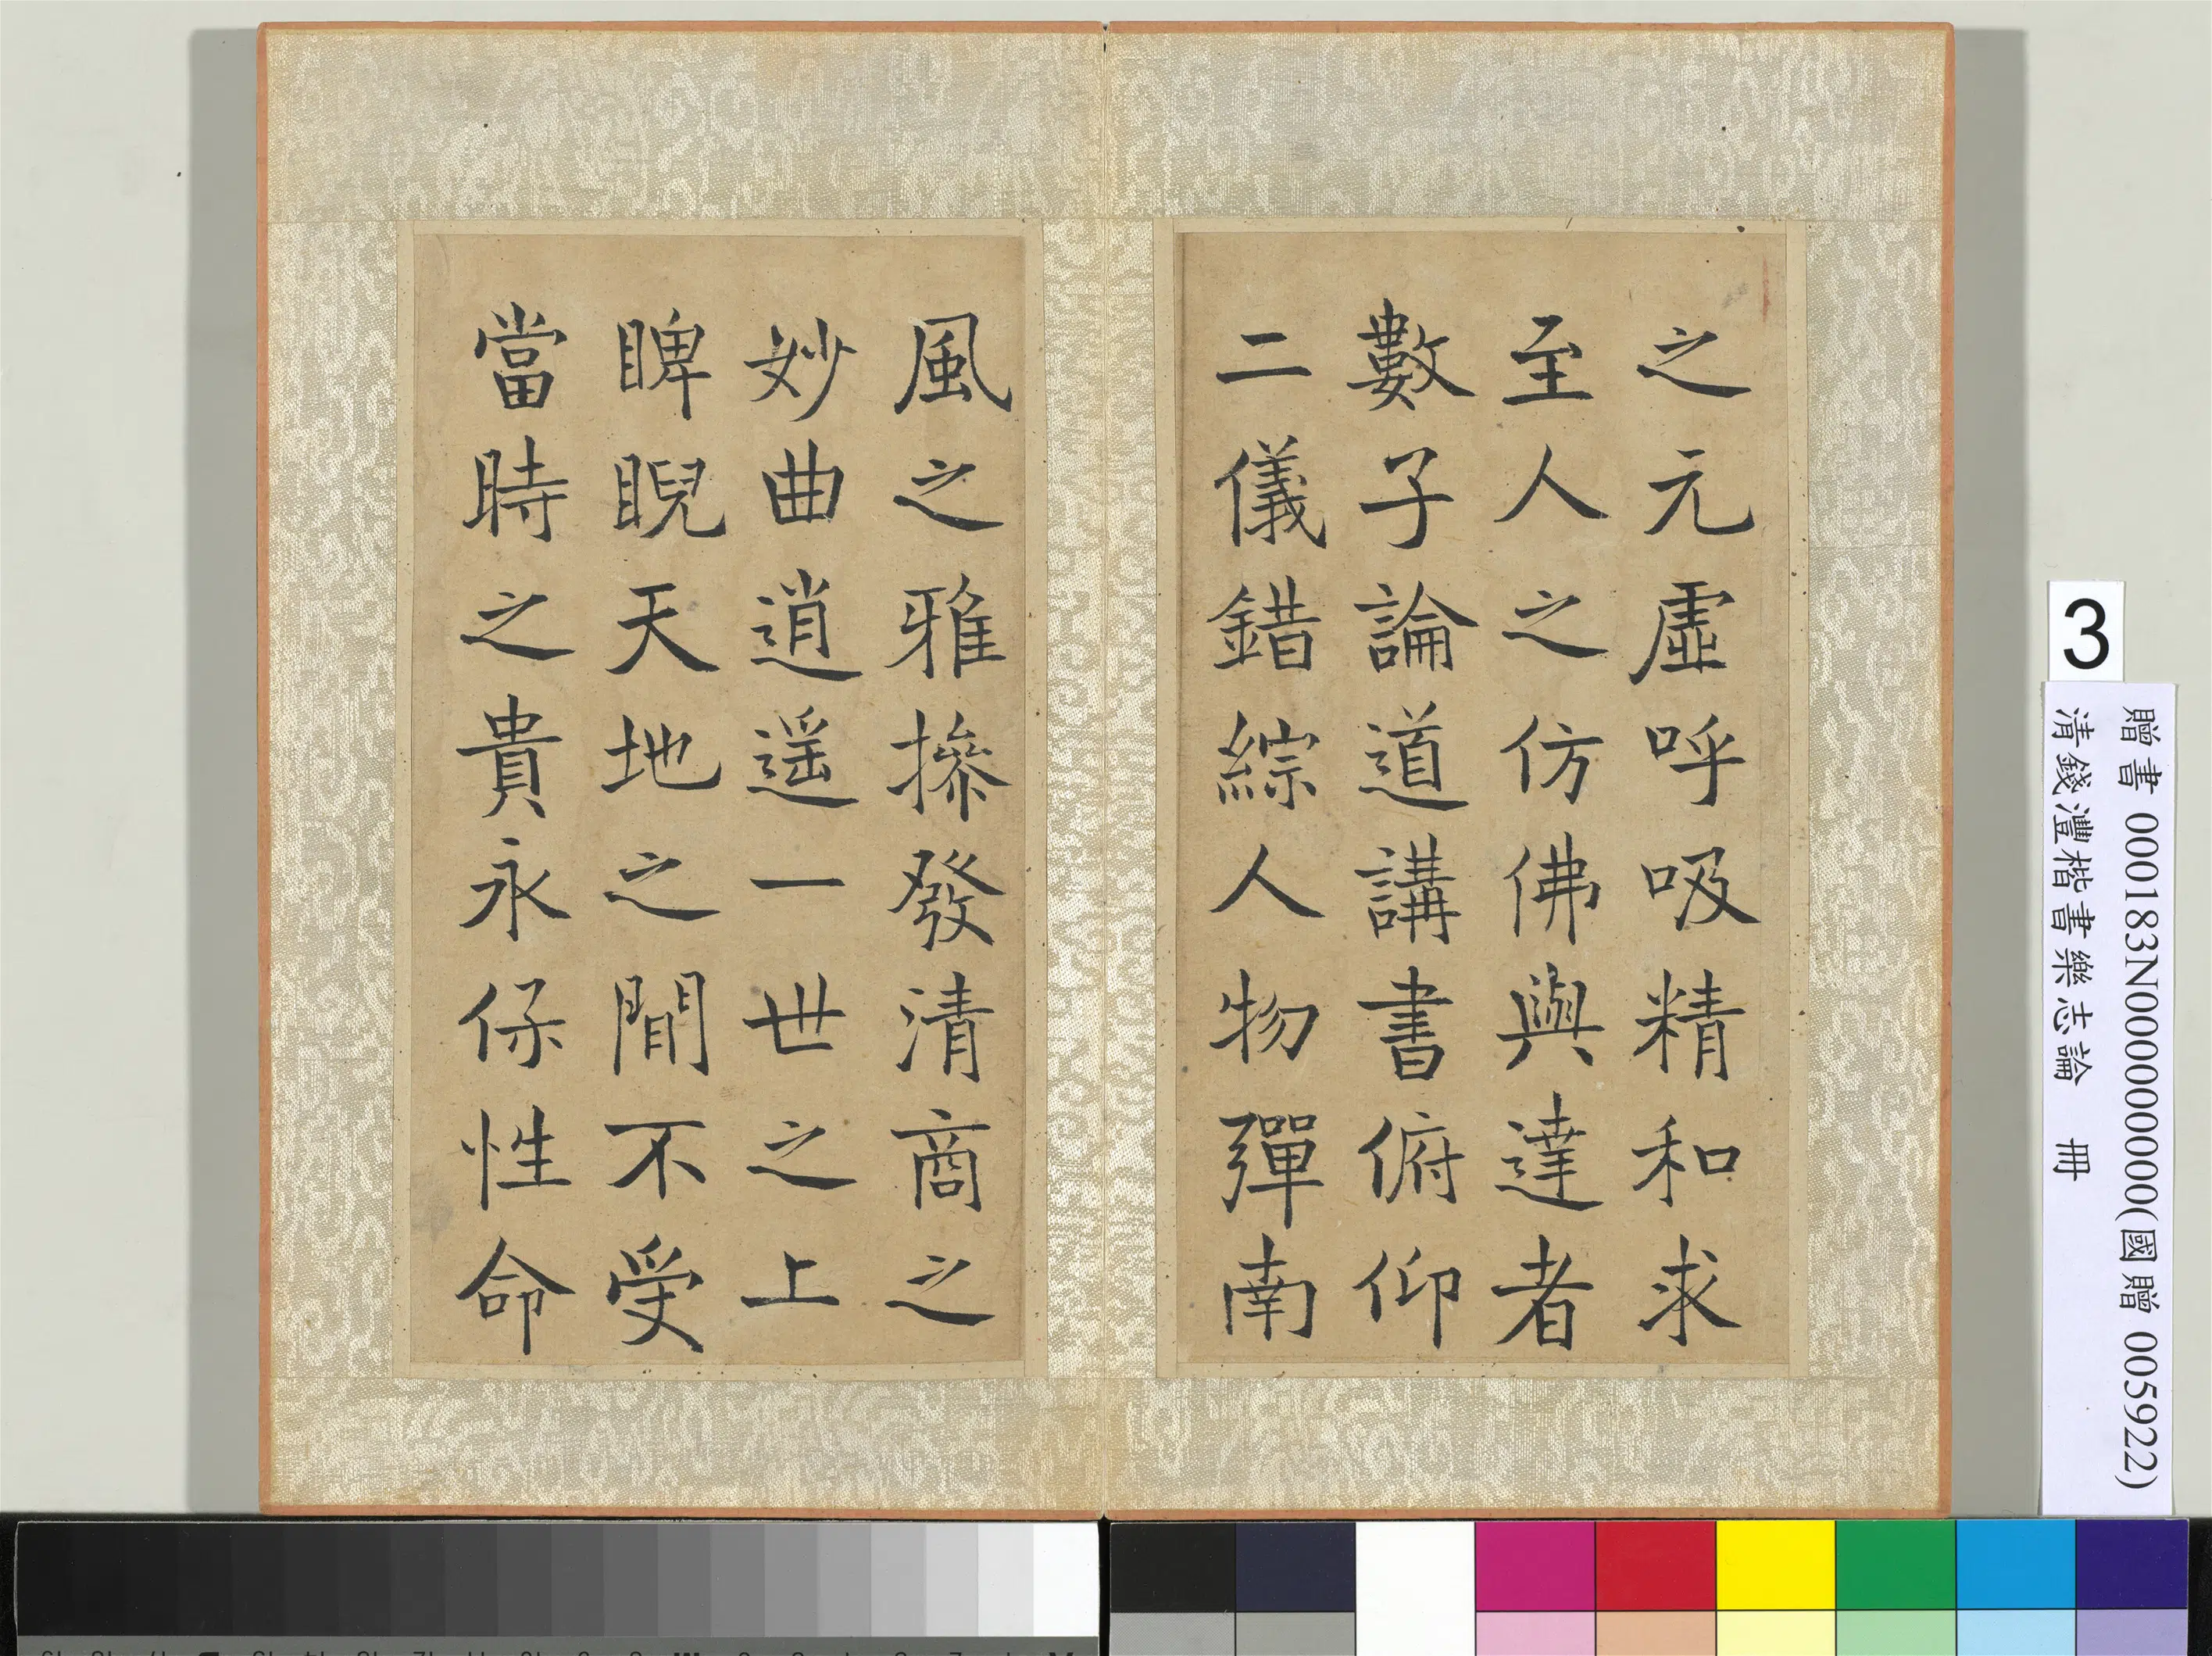 之元虛呼吸精和求
至人之仿佛與達者
數子論道講書俯仰
二儀錯綜人物彈南
風之雅摻發清商之
妙曲逍遥一世之上
睥睨天地之閒不受
當時之貴永保性命
3
贈書 000183N000000000(國贈 005922)
清錢灃楷書樂志論 冊